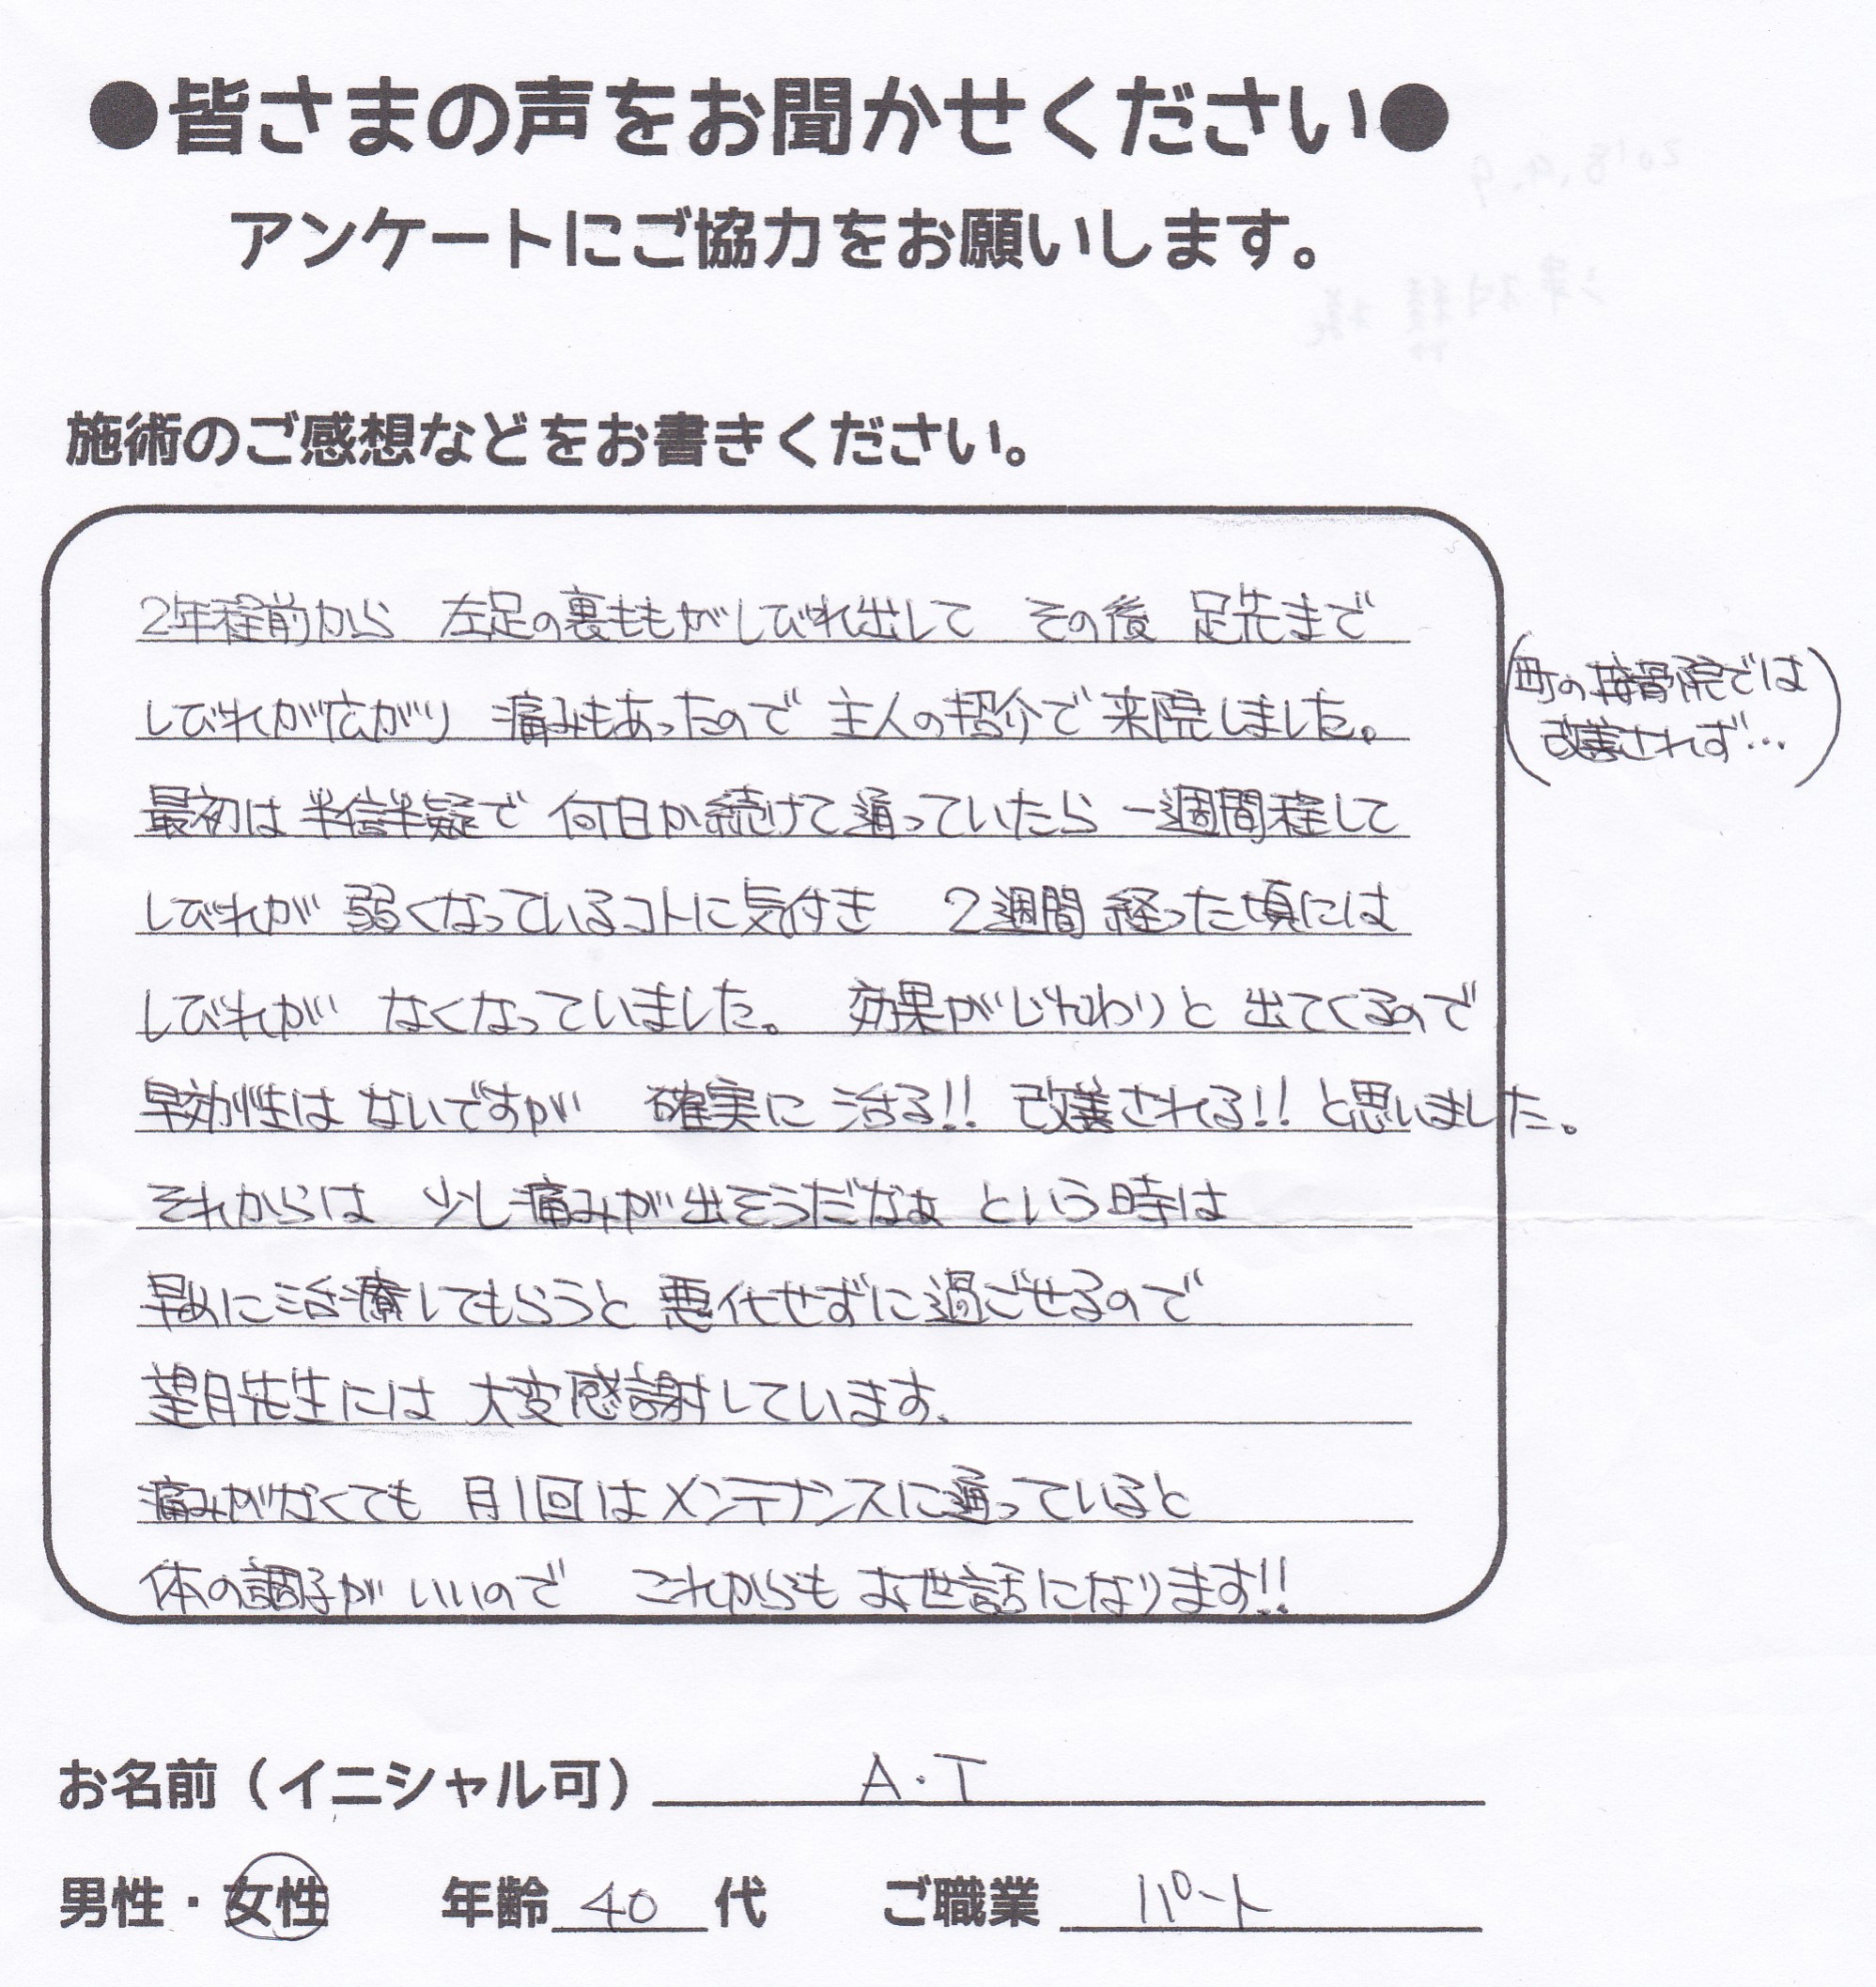 ●皆さまの声をお聞かせください●
アンケートにご協力をお願いします。
施術のご感想などをお書きください。
2年程前から 左足の裏ももがしびれ出して その後 足先まで
しびれが広がり 痛みもあったので 主人の紹介で 来院しました。
(町の接骨院では
改善されず…)
最初は 半信半疑で 何日か続けて通っていたら 一週間程して
しびれが 弱くなっているコトに気付き 2週間 経った頃には
しびれが なくなっていました。 効果がじんわりと 出てくるので
早効性は ないですが 確実に 治る!! 改善される!! と思いました。
それからは 少し痛みが出そうだなぁ という時は
早めに治療してもらうと 悪化せずに過ごせるので
望月先生には 大変感謝しています。
痛みがなくても 月1回はメンテナンスに通っていると
体の調子が いいので これからも お世話になります!!
お名前（イニシャル可） A・T
男性・女性 年齢 40 代 ご職業 パート